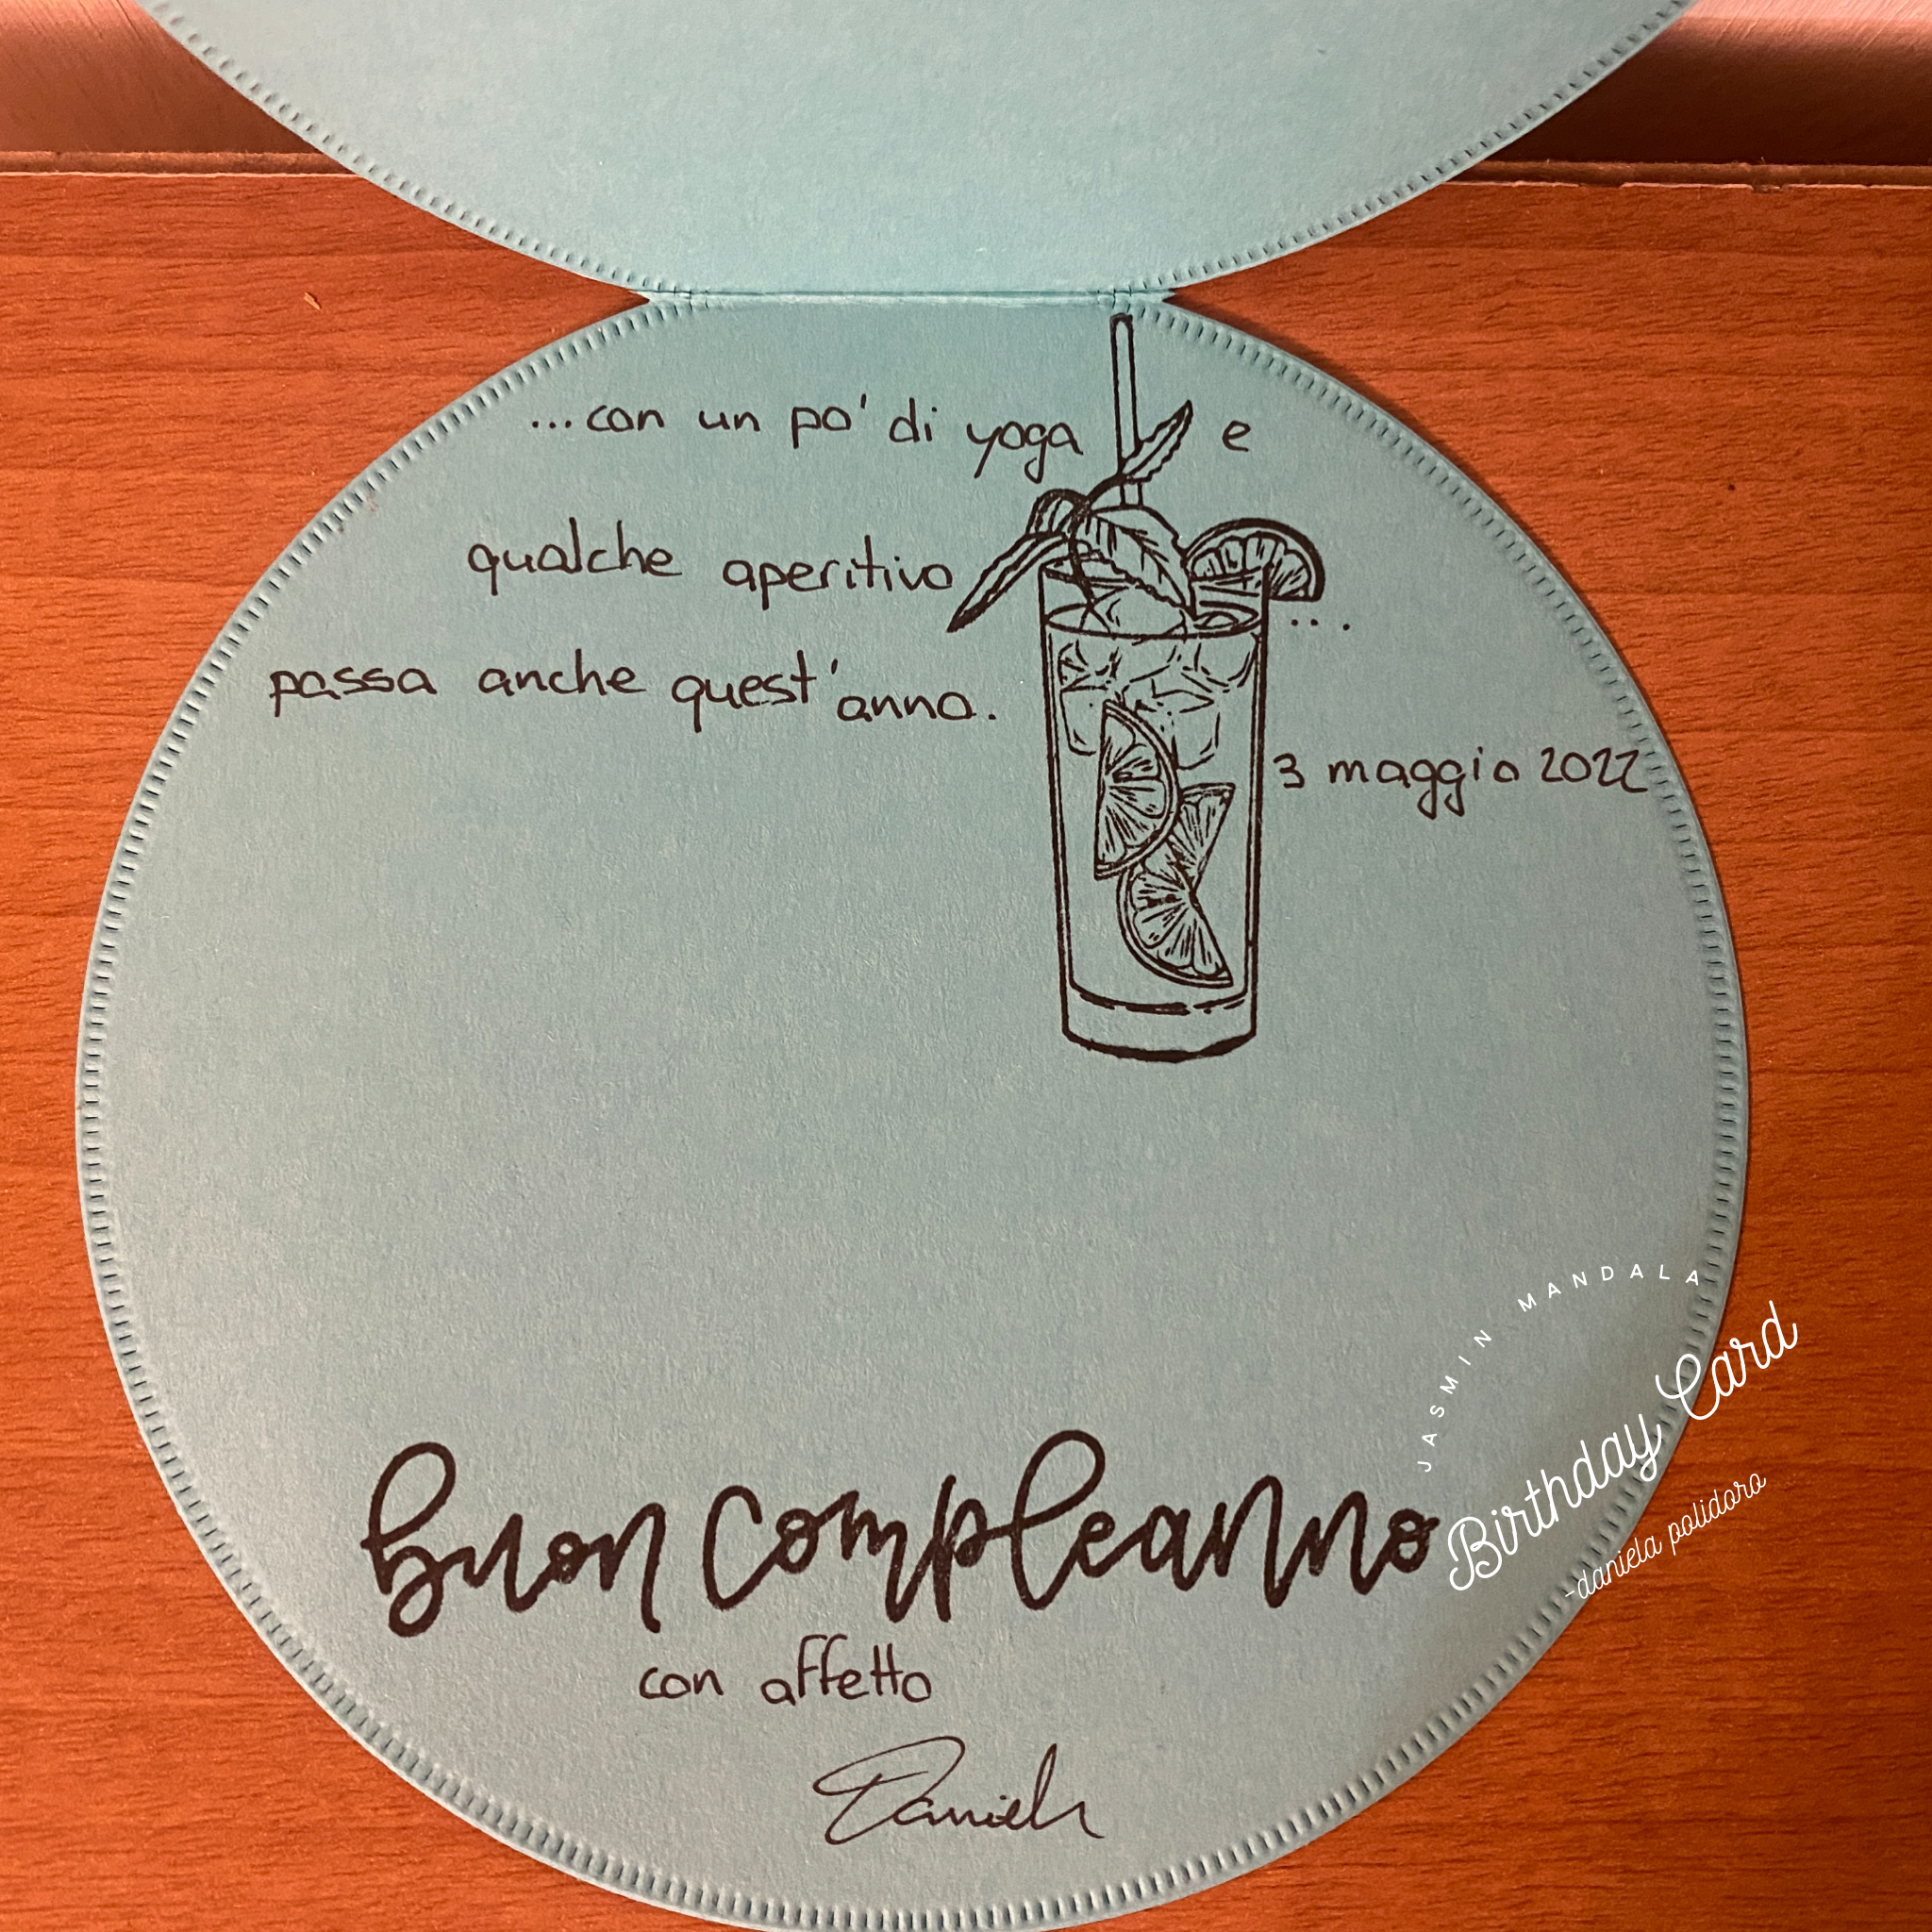 ...con un po' di yoga e
qualche aperitivo ...
passa anche quest'anno.
3 maggio 2022
JASMIN MANDALA
Birthday Card
-daniela polidoro
buon compleanno
con affetto
Daniela